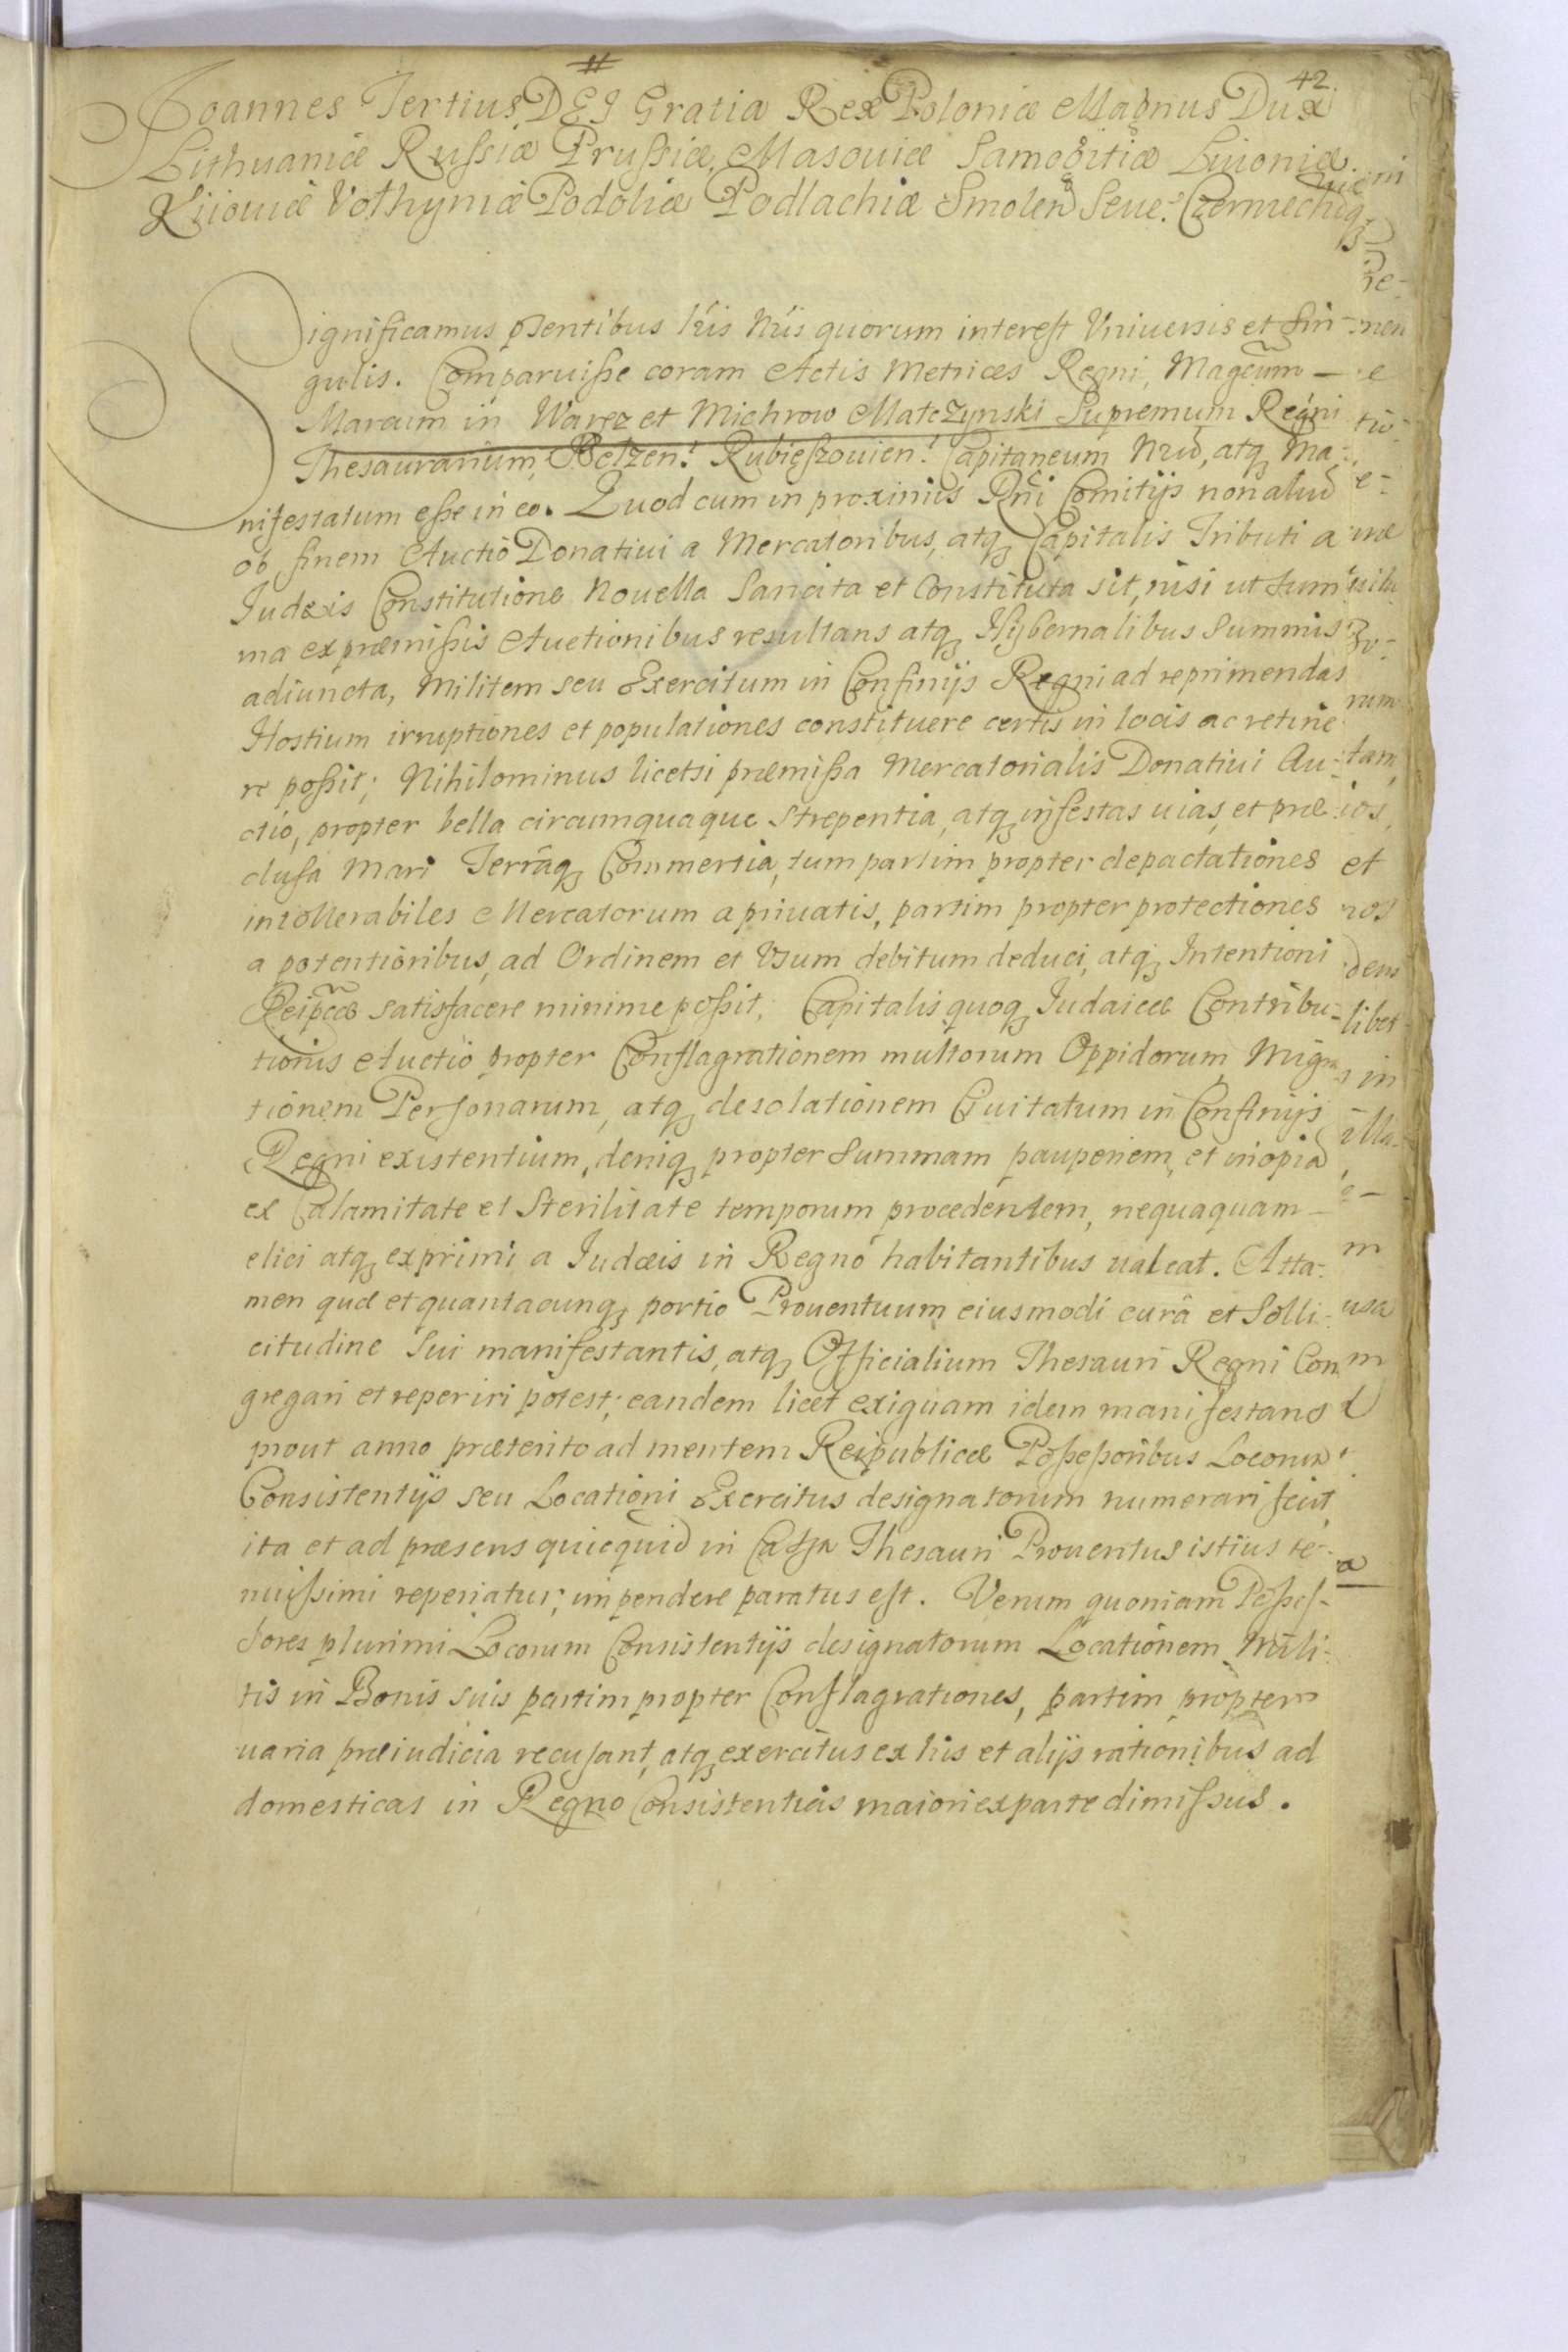 42.
Joannes Tertius DEI Gratia Rex Poloniæ Magnus Dux
Lithuaniæ Russiæ Prussiæ, Masouiæ Samogitiæ Liuoniæ
Kiiouiæ Volhyniæ Podoliæ Podlachiæ Smolen Seue: Czerniechiæq,
Significamus pñtibus lris Nris quorum interest Vniuersis et sin-
gulis. Comparuisse coram Actis Metrices Regni, Magcum
Marcum in Warez et Michrow Matczynski Supremum Regni
Thesaurarium, Belzen: Rubięszouien: Capitaneum Nrum, atq, Ma-
nifestatum esse in eo. Quod cum in proximis Rni Comitijs non aliud
ob finem Auctio Donatiui a Mercatoribus, atq, Capitalis Tributi a
Judæis Constitutione Nouella Sancita et Constituta sit, nisi ut sum-
ma ex præmissis Auctionibus resultans atq, Hybernalibus Summis
adiuncta, Militem seu Exercitum in Confinijs Regni ad reprimendas
Hostium irruptiones et populationes constituere certis in locis ac retine
re possit; Nihilominus licetsi præmissa Mercatorialis Donatiui Au-
ctio, propter bella circumquaque strepentia, atq, infestas uias, et præ
clusa Mari Terrâq, Commertia, tum partim propter depactationes
intollerabiles Mercatorum a priuatis, partim propter protectiones
a potentioribus, ad Ordinem et Vsum debitum deduci, atq, Intentioni
Reipcæ satisfacere minime possit, Capitalis quoq, Iudaicæ Contribu-
tionis Auctio propter Conflagrationem multorum Oppidorum Migra
tionem Personarum, atq, desolationem Ciuitatum in Confinijs
Regni existentium, deniq, propter summam pauperiem, et inopia
ex Calamitate et Sterilitate temporum procedentem, nequaquam
elici atq, exprimi a Judæis in Regno habitantibus ualeat. Atta-
men quæ et quantacunq, portio Prouentuum eiusmodi curâ et Solli-
citudine Sui manifestantis, atq, Officialium Thesauri Regni Con
gregari et reperiri potest; eandem licet exiguam idem manifestans
prout anno præterito ad mentem Reipublicæ Possessoribus Locorum
Consistentijs seu Locationi Exercitus designatorum numerari fecit,
ita et ad præsens quicquid in Cassa Thesauri Prouentus istius te-
nuissimi reperiatur; impendere paratus est. Verum quoniam Posses-
sores plurimi Locorum Consistentijs designatorum Locationem Mili-
tis in Bonis suis partim propter Conflagrationes, partim propter
uaria præiudicia recusant, atq, exercitus ex his et alijs rationibus ad
domesticas in Regno Consistentias maiori ex parte dimissus.